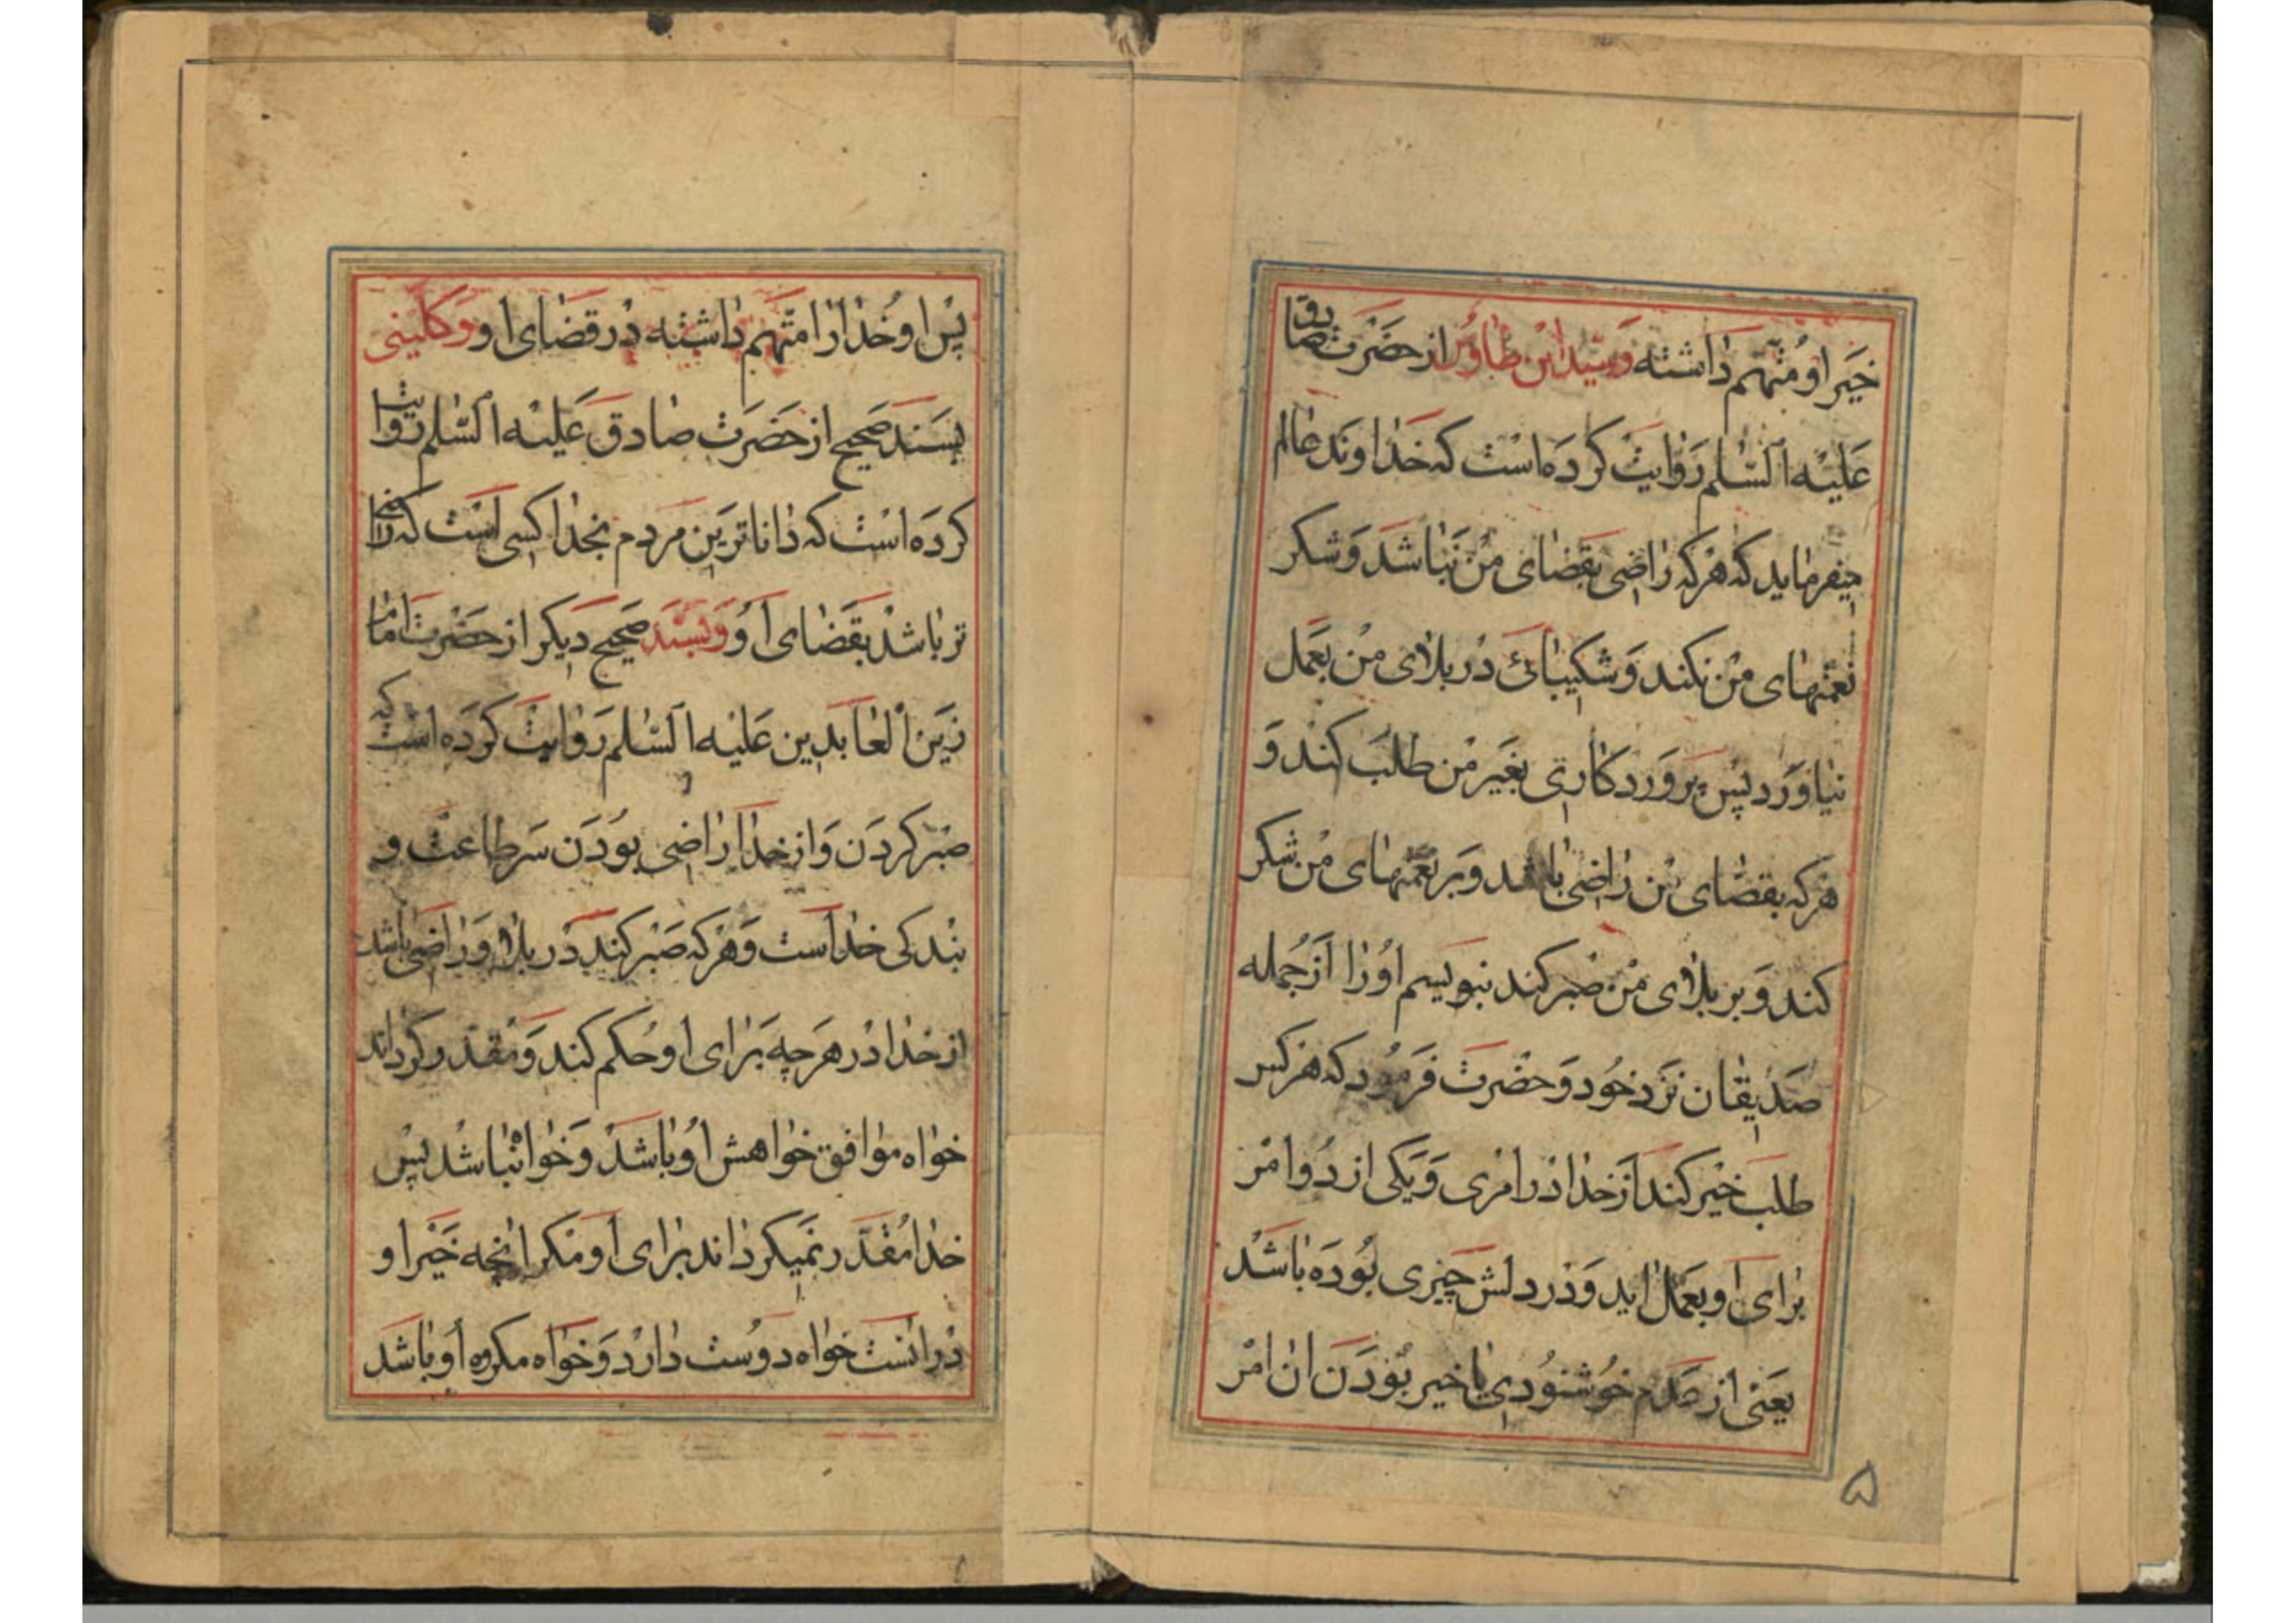 خیر او متهم داشته و سید ابن طاوس از حضرت صادق
علیه السلم روایت کرده است که خداوند عالم
میفرماید که هرکه راضی بقضای من نباشد و شکر
نعمتهای من نکند و شکیبائی در بلای من بعمل
نیاورد پس پروردکاری بغیر من طلب کند و
هرکه بقضای من راضی باشد و بر نعمتهای من شکر
کند و بر بلای من صبر کند بنویسم او را از جمله
صدیقان نزد خود و حضرت فرمود که هرکس
طلب خیر کند از خدا در امری و یکی از دو امر
برای او بعمل اید و در دلش چیزی بوده باشد
یعنی از عدم خوشنودی با خیر بودن ان امر
۵
پس او خدا را متهم داشته در قضای او و کلینی
بسند صحیح از حضرت صادق علیه السلم روایت
کرده است که داناترین مردم بخدا کسی است که راضی
تر باشد بقضای او و بسند صحیح دیکر از حضرت امام
زین العابدین علیه السلم روایت کرده است که
صبر کردن و از خدا راضی بودن سر طاعت و
بندکی خداست و هرکه صبر کند در بلا و راضی باشد
از خدا در هرچه برای او حکم کند و مقدر کرداند
خواه موافق خواهش او باشد و خواه نباشد پس
خدا مقدر نمیکرداند برای او مکر انچه خیر او
در انست خواه دوست دارد و خواه مکروه او باشد